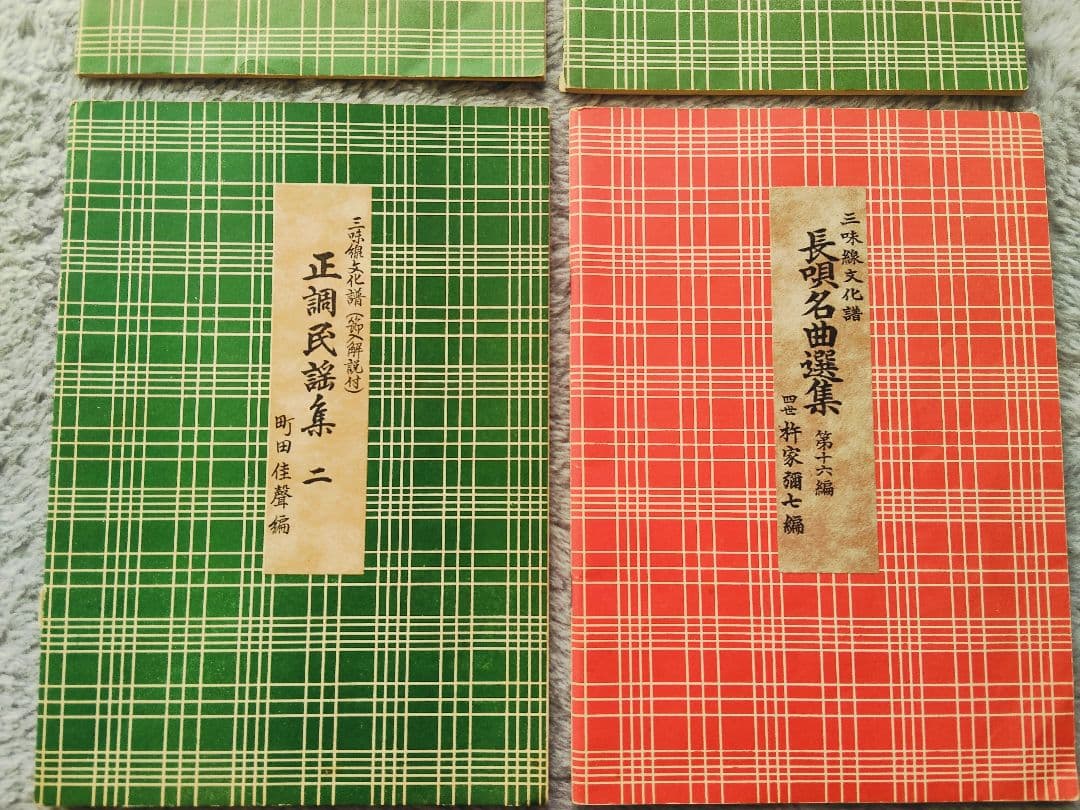 三味線文化譜（節入解説付）
正調民謡集 二
町田佳聲編
三味線文化譜
長唄名曲選集
第十六編
四世 杵家彌七編